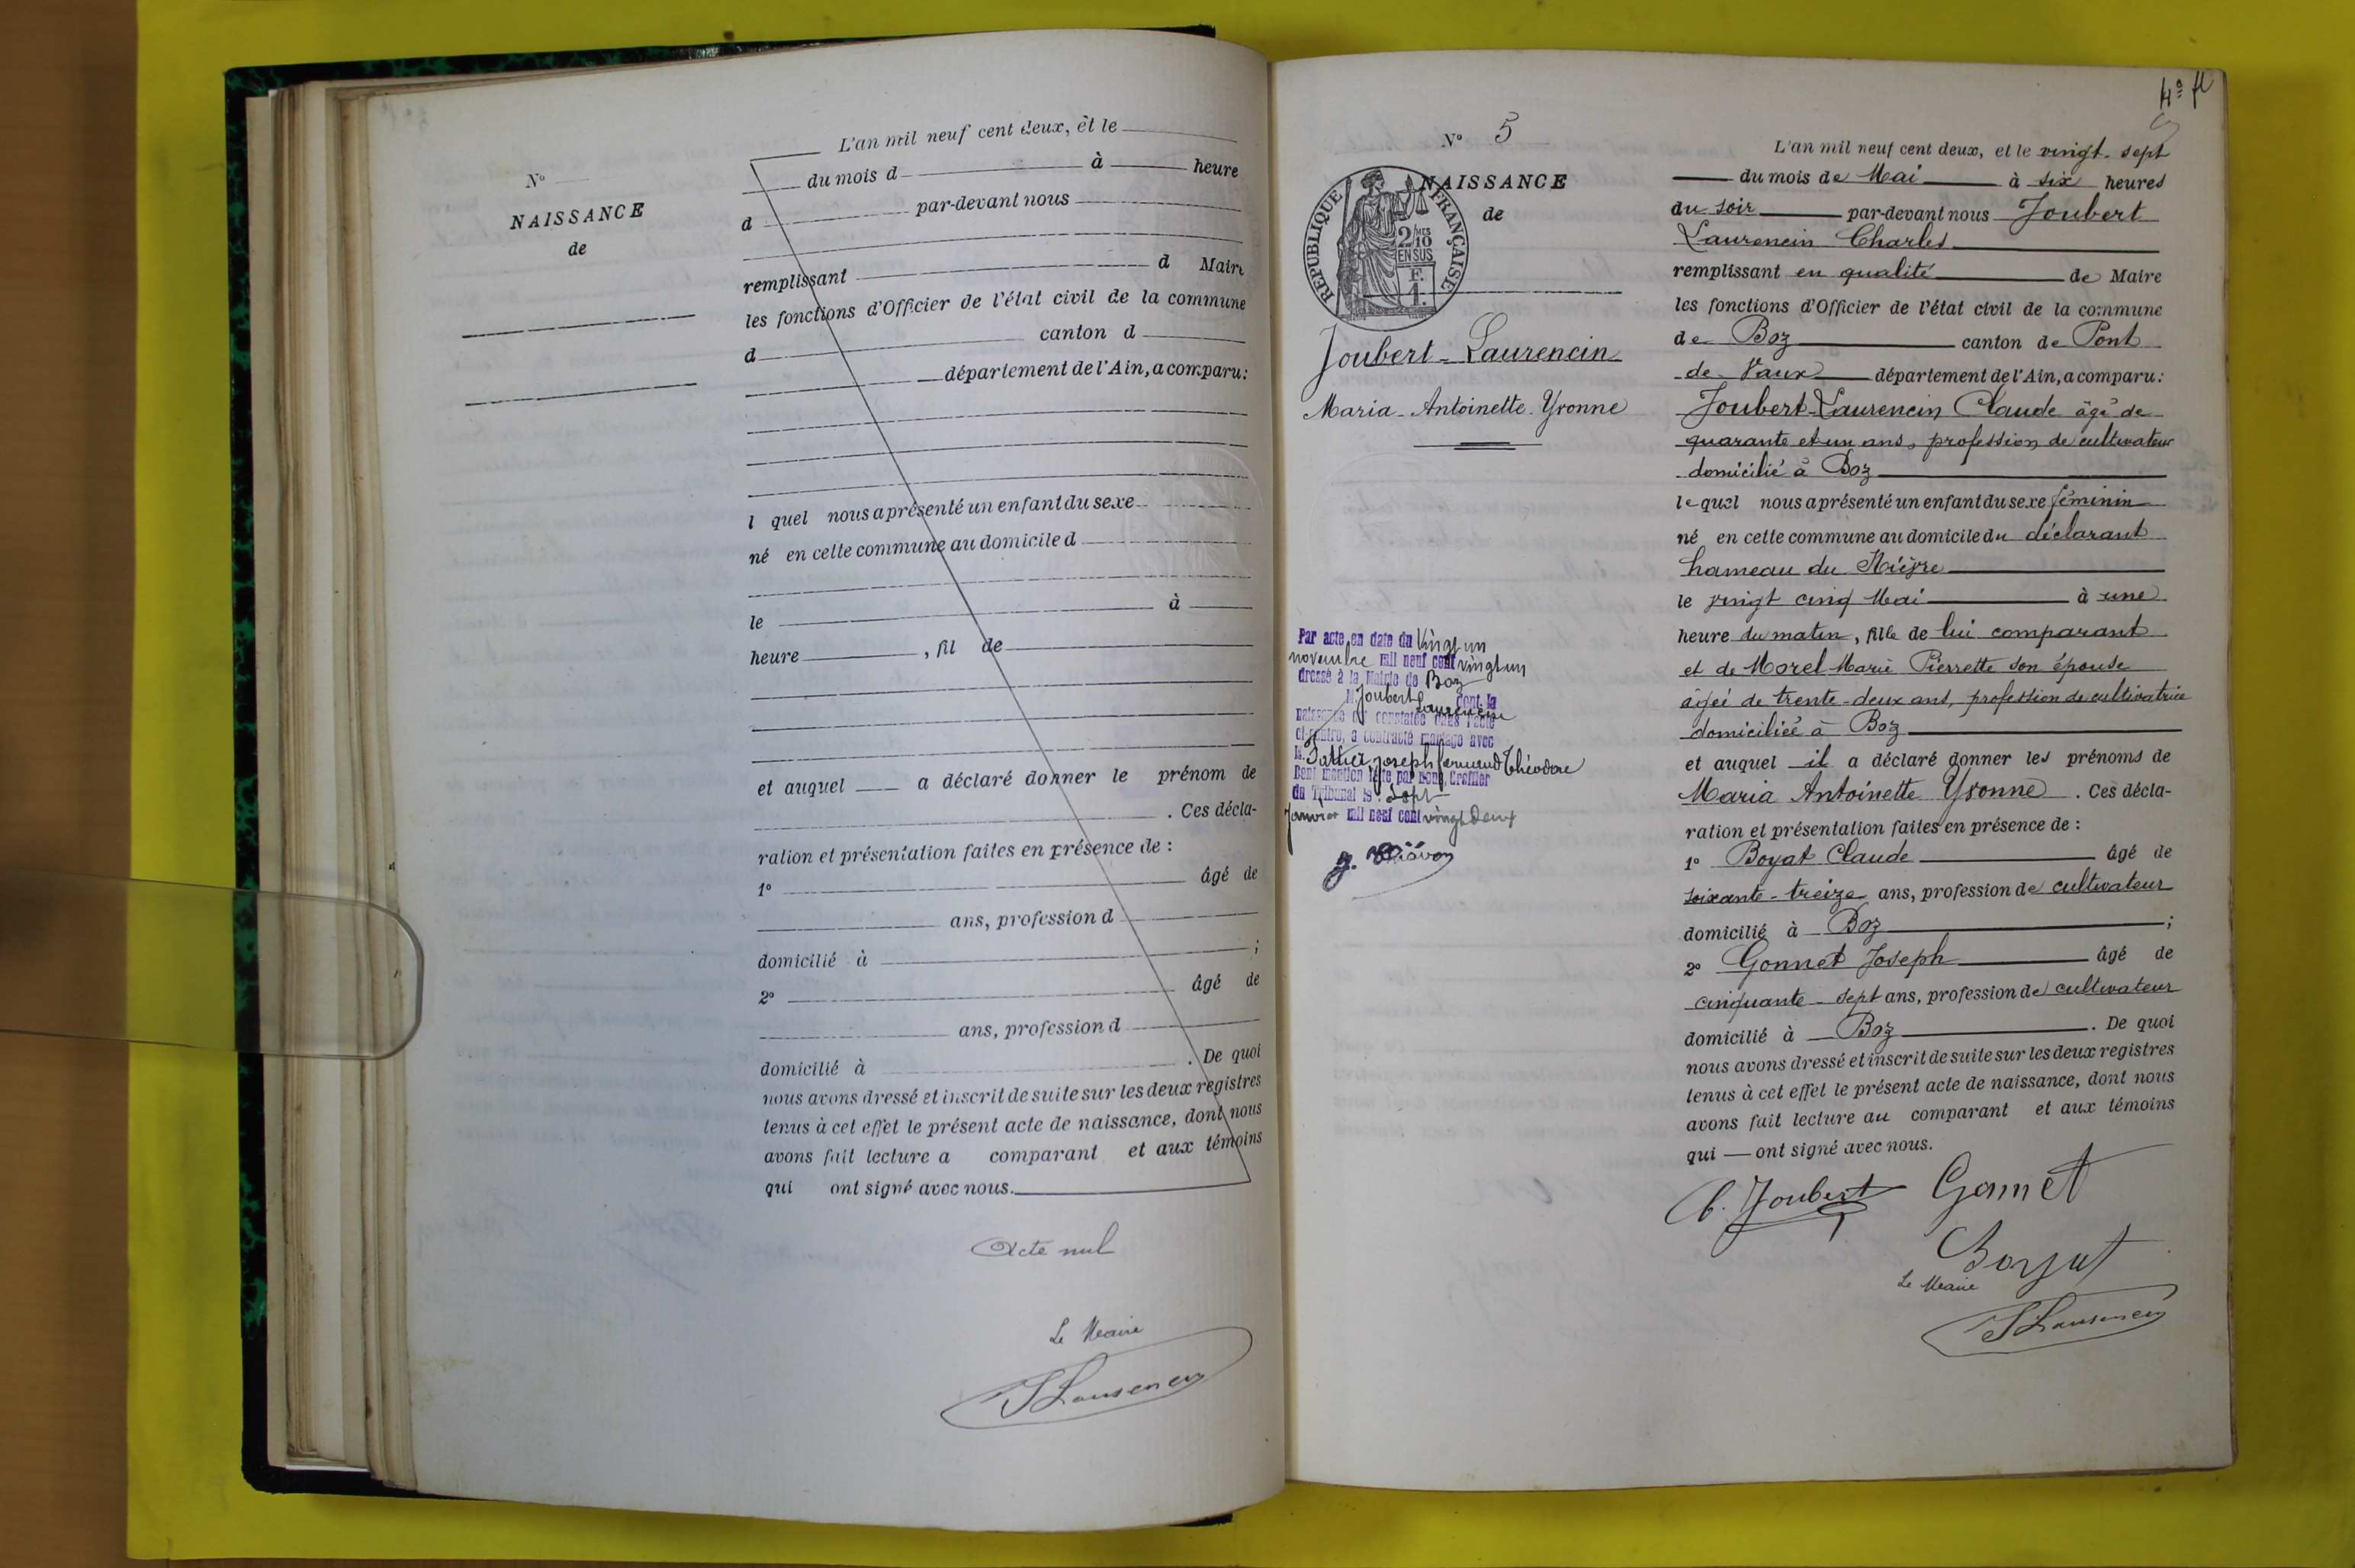 N°
NAISSANCE
de
L'an mil neuf cent deux, et le
du mois d à heure
d par-devant nous
remplissant d Maire
les fonctions d'Officier de l'état civil de la commune
d canton d
département de l'Ain, a comparu:
l quel nous a présenté un enfant du sexe
né en cette commune au domicile d
le à
heure , fil de
et auquel a déclaré donner le prénom de
. Ces décla-
ration et présentation faites en présence de :
1° âgé de
ans, profession d
domicilié à ;
2° âgé de
ans, profession d
domicilié à . De quoi
nous avons dressé et inscrit de suite sur les deux registres
tenus à cet effet le présent acte de naissance, dont nous
avons fait lecture a comparant et aux témoins
qui ont signé avec nous.
Acte nul
Le Maire
4e fl
N° 5
NAISSANCE
de
RÉPUBLIQUE FRANÇAISE
2/10 MES
EN SUS
F.
1.
Joubert-Laurencin
Maria-Antoinette-Yvonne
Par acte en date du Vingt un
novembre mil neuf cent vingt un
dressé à la Mairie de Boz
M. Joubert Laurencin dont la
naissance est constatée dans l'acte
ci-contre, a contracté mariage avec
Joseph Fernand Théodore
Dont mention faite par nous, Greffier
du Tribunal le Sept
Janvier mil neuf cent vingt deux
L'an mil neuf cent deux, et le vingt-sept
du mois de Mai à six heures
du soir par-devant nous Joubert
Laurencin Charles
remplissant en qualité de Maire
les fonctions d'Officier de l'état civil de la commune
de Boz canton de Pont
de-Vaux département de l'Ain, a comparu:
Joubert-Laurencin Claude âgé de
quarante et un ans, profession de cultivateur
domicilié à Boz
lequel nous a présenté un enfant du sexe féminin
né en cette commune au domicile du déclarant
hameau du
le vingt cinq Mai à une
heure du matin, fille de lui comparant
et de Morel Marie Pierrette son épouse
âgée de trente-deux ans, profession de cultivatrice
domiciliée à Boz
et auquel il a déclaré donner les prénoms de
Maria Antoinette Yvonne . Ces décla-
ration et présentation faites en présence de :
1° Boyat Claude âgé de
soixante-treize ans, profession de cultivateur
domicilié à Boz ;
2° Gonnet Joseph âgé de
cinquante-sept ans, profession de cultivateur
domicilié à Boz . De quoi
nous avons dressé et inscrit de suite sur les deux registres
tenus à cet effet le présent acte de naissance, dont nous
avons fait lecture au comparant et aux témoins
qui — ont signé avec nous.
C. Joubert Gonnet
Boyat
Le Maire